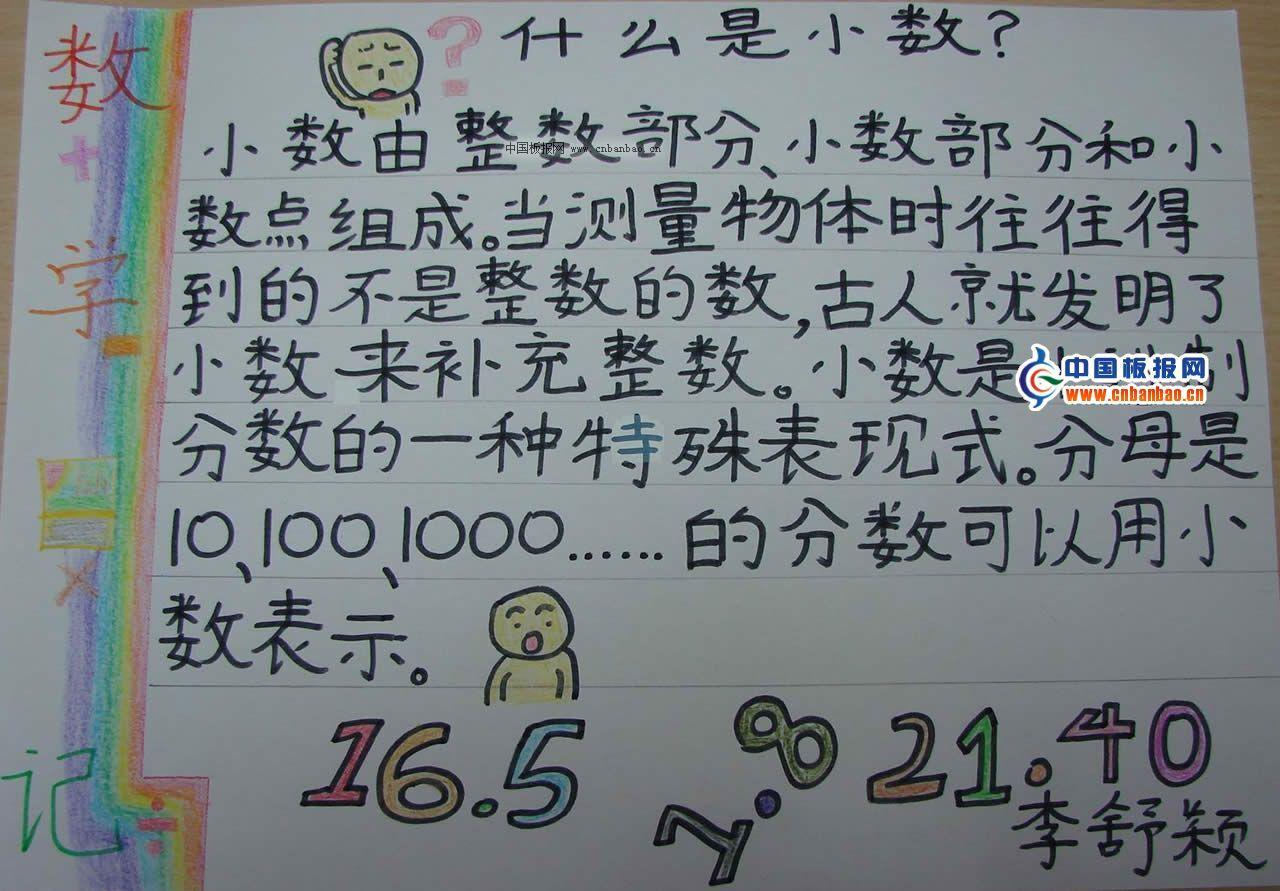 数
+
学
-
=
×
记
÷
? 什么是小数?
小数由整数部分、小数部分和小
数点组成。当测量物体时往往得
到的不是整数的数,古人就发明了
小数来补充整数。小数是制
分数的一种特殊表现式。分母是
10、100、1000……的分数可以用小
数表示。
16.5 7.8 21.40
李舒颖
中国板报网 www.cnbanbao.cn
中国板报网
www.cnbanbao.cn